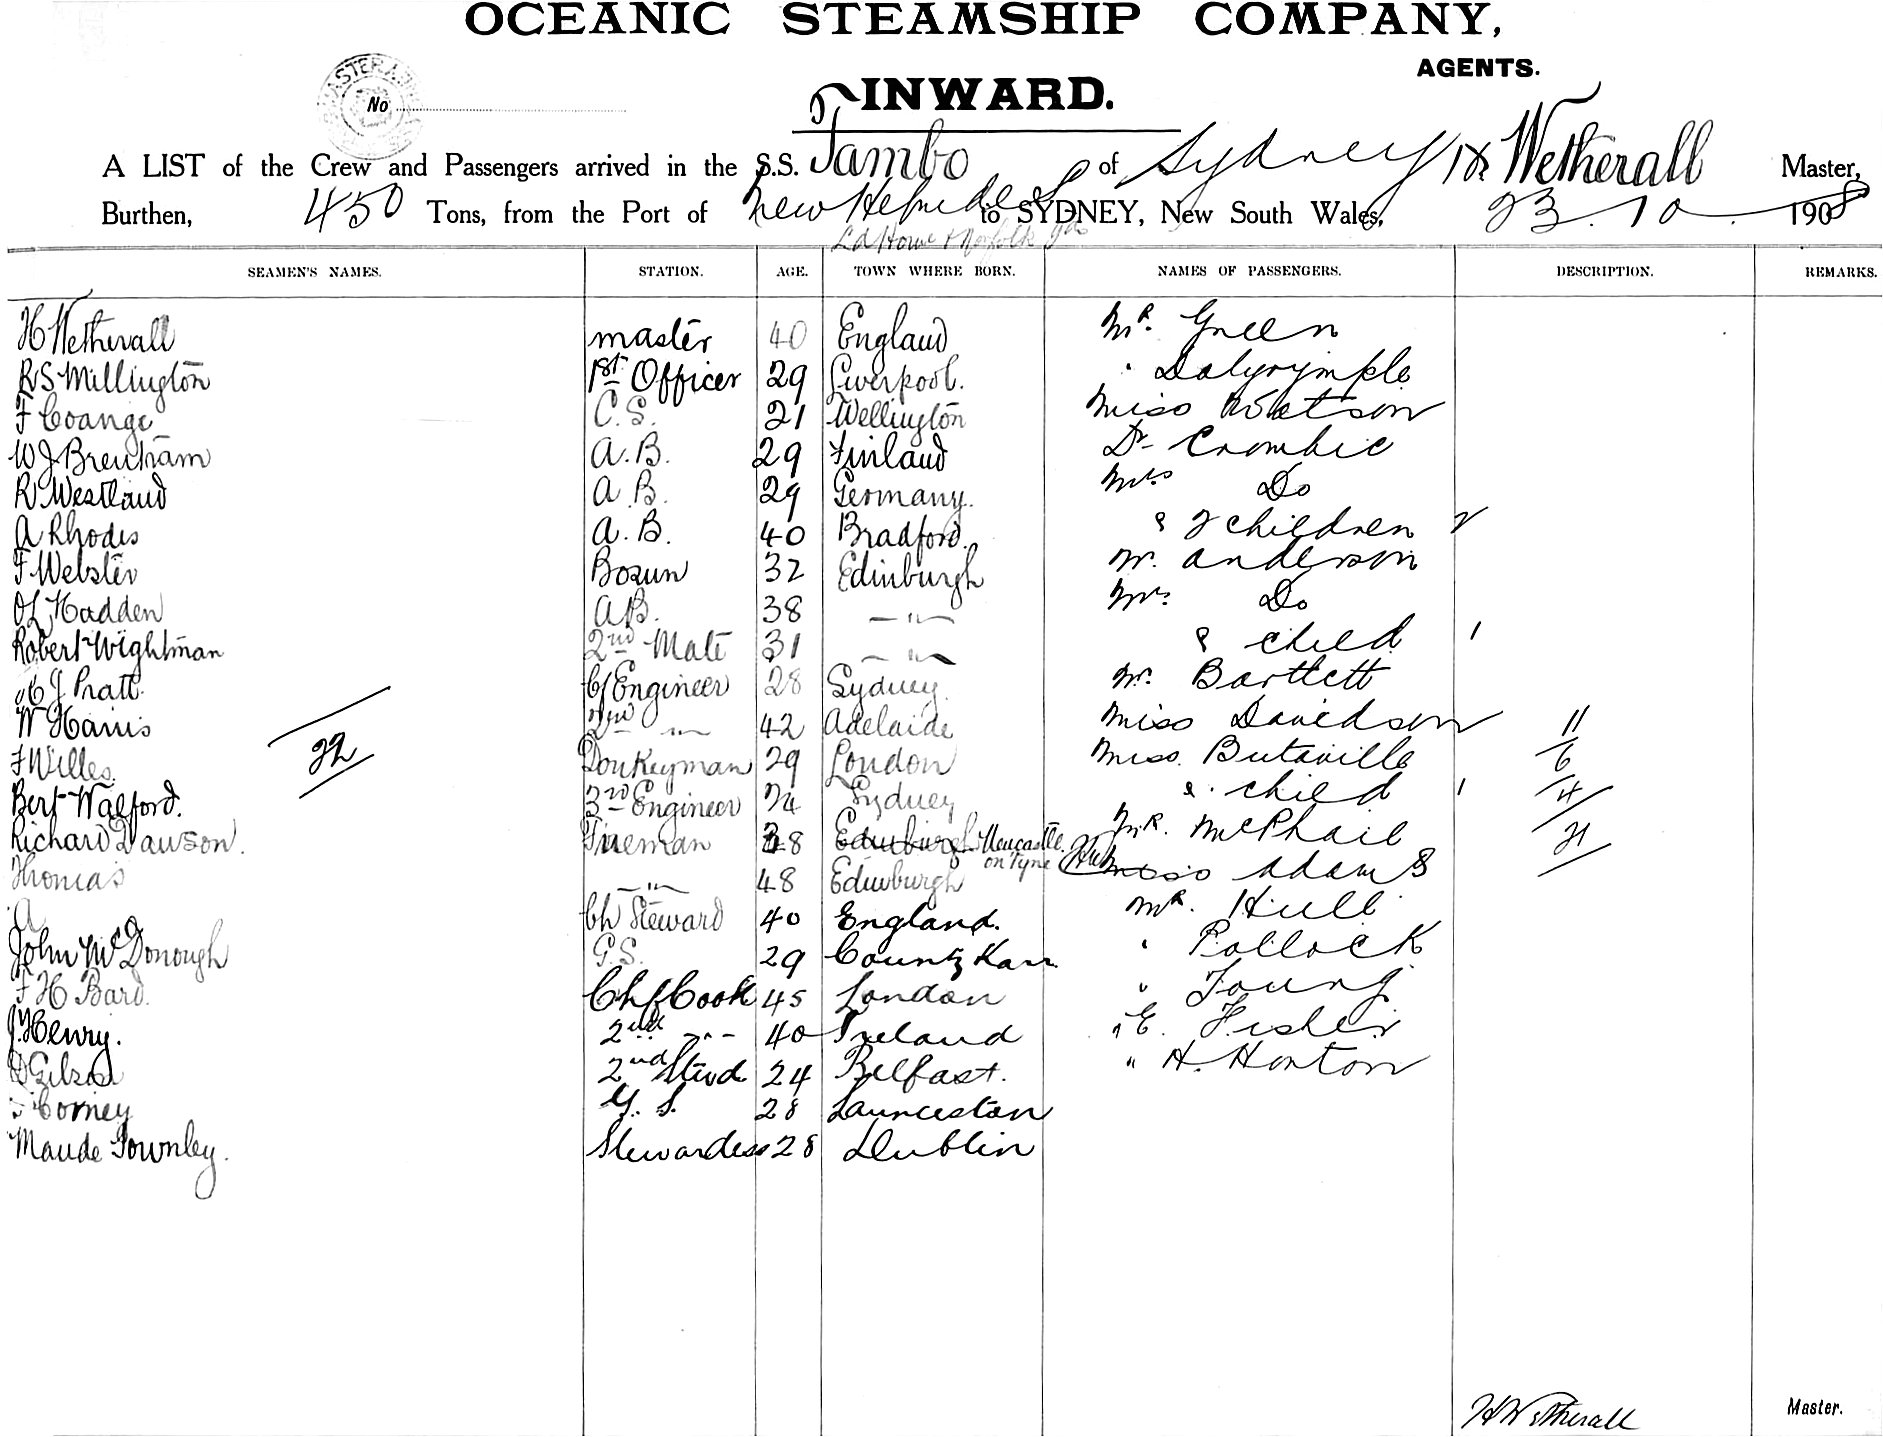 OCEANIC STEAMSHIP COMPANY,
AGENTS.
No
INWARD.
A LIST of the Crew and Passengers arrived in the S.S. Tambo of Sydney H Wetherall Master,
Burthen, 450 Tons, from the Port of New Hebrides to SYDNEY, New South Wales, 23. 10 1908
Ld Howe & Norfolk Ids
SEAMEN'S NAMES. STATION. AGE. TOWN WHERE BORN. NAMES OF PASSENGERS. DESCRIPTION. REMARKS.
H Wetherall master 40 England Mr. Green
RS Millington 1st Officer 29 Liverpool. " Dalyrymple
F Coange C.S. 21 Wellington Miss Watson
WJ Brentnam A.B. 29 Finland Dr Crombie
R Westland A.B. 29 Germany. Mrs Do
A Rhodes A.B. 40 Bradford. & 2 children 2
F Webster Bosun 32 Edinburgh Mr. Anderson
Hadden A.B. 38 — " — Mrs. Do
Robert Wightman 2nd Mate 31 — " — & child 1
J Pratt. Cf Engineer 28 Sydney. Mr. Bartlett
W Harris 2nd — " — 42 Adelaide Miss Davidson 11
F Willes. Donkeyman 29 London Miss. Butaville 6
22
Bert Walford. 3rd Engineer 24 Sydney & child 1 4
Richard Dawson. Fireman 38 Edinburgh Newcastle on Tyne Mr. McPhail 21
Thomas — " — 48 Edinburgh Miss Adams
A Ch Steward 40 England. Mr. Hull
John McDonough G.S. 29 County Karr " Pollock
F H Bard. Chf Cook 45 London " Young
J. Henry. 2nd " 40 Ireland " E. Fisher
D Gibson 2nd Stwd 24 Belfast. " H. Horton
Corney G. S. 28 Launceston
Maude Townley. Stewardess 28 Dublin
H Wetherall Master.